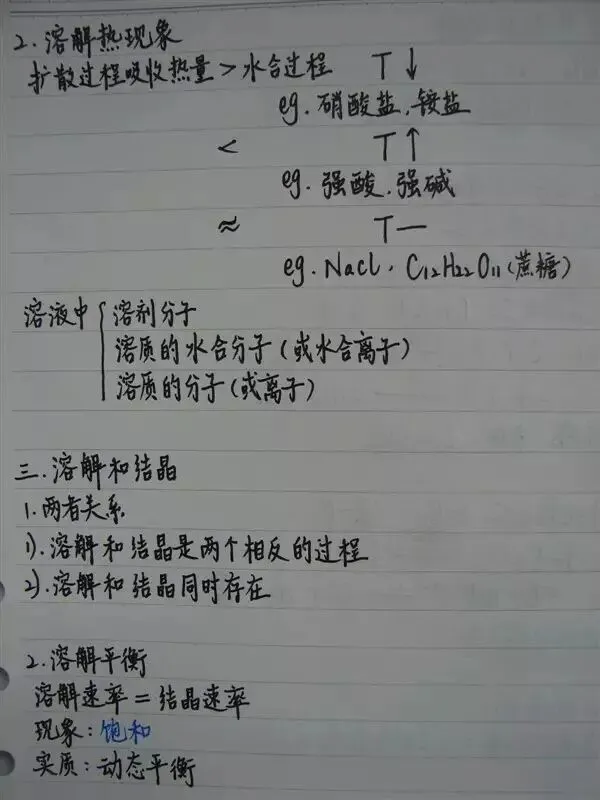 2.溶解热现象
扩散过程吸收热量>水合过程 T↓
eg.硝酸盐.铵盐
< T↑
eg.强酸.强碱
≈ T—
eg.Nacl.C₁₂H₂₂O₁₁(蔗糖)
溶液中{溶剂分子
溶质的水合分子(或水合离子)
溶质的分子(或离子)
三.溶解和结晶
1.两者关系
1).溶解和结晶是两个相反的过程
2).溶解和结晶同时存在
2.溶解平衡
溶解速率=结晶速率
现象:饱和
实质:动态平衡